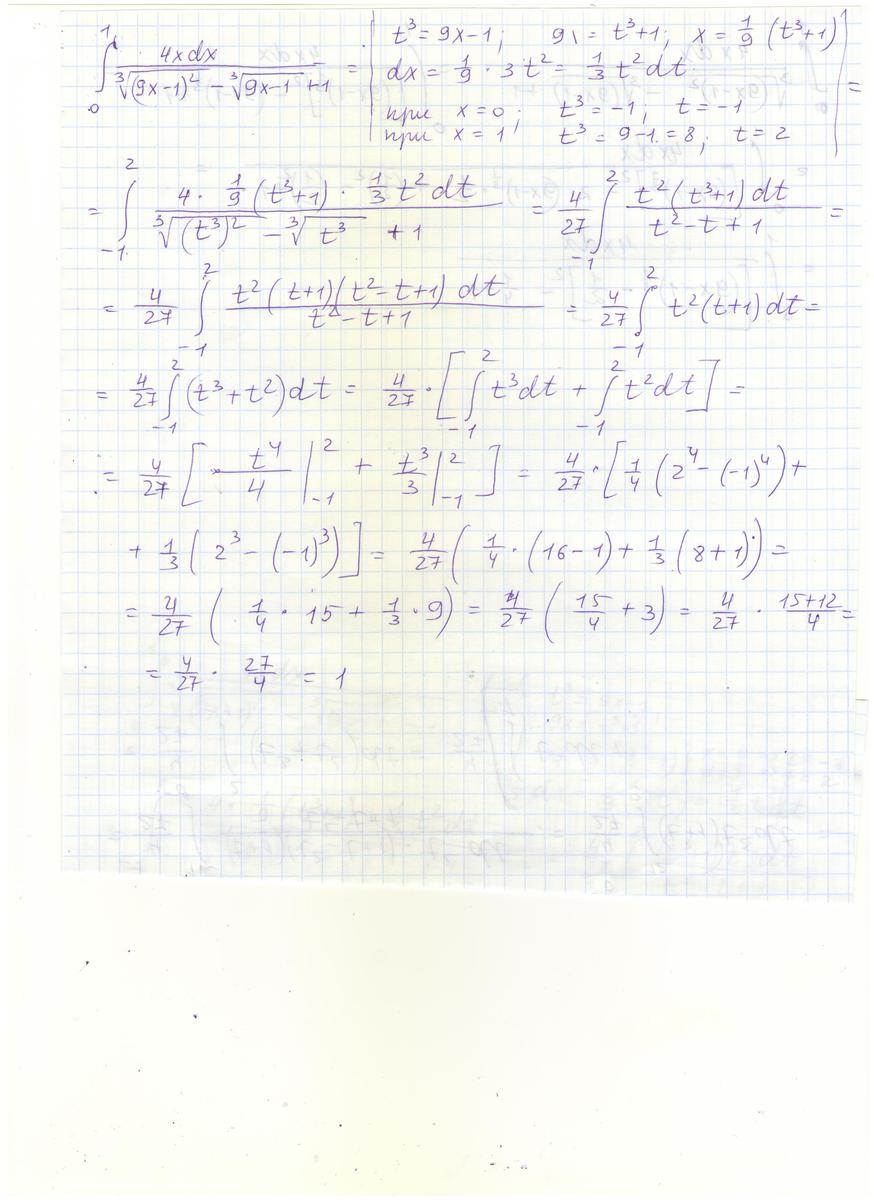 ∫₀¹ 4xdx / (∛(9x-1)² - ∛(9x-1) + 1) = | t³ = 9x-1; 9\ = t³+1; x = 1/9 (t³+1) |
dx = 1/9 · 3t² = 1/3 t² dt
при x=0; t³ = -1; t = -1
при x=1; t³ = 9-1 = 8; t = 2 | =
= ∫₋₁² (4 · 1/9 (t³+1) · 1/3 t² dt) / (∛(t³)² - ∛t³ + 1) = 4/27 ∫₋₁² t²(t³+1)dt / (t²-t+1) =
= 4/27 ∫₋₁² t²(t+1)(t²-t+1)dt / (t²-t+1) = 4/27 ∫₋₁² t²(t+1)dt =
= 4/27 ∫₋₁² (t³+t²)dt = 4/27 · [∫₋₁² t³dt + ∫₋₁² t²dt] =
= 4/27 [t⁴/4 |₋₁² + t³/3 |₋₁²] = 4/27 · [1/4 (2⁴ - (-1)⁴) +
+ 1/3 (2³ - (-1)³)] = 4/27 (1/4 · (16-1) + 1/3 (8+1)) =
= 4/27 (1/4 · 15 + 1/3 · 9) = 4/27 (15/4 + 3) = 4/27 · (15+12)/4 =
= 4/27 · 27/4 = 1